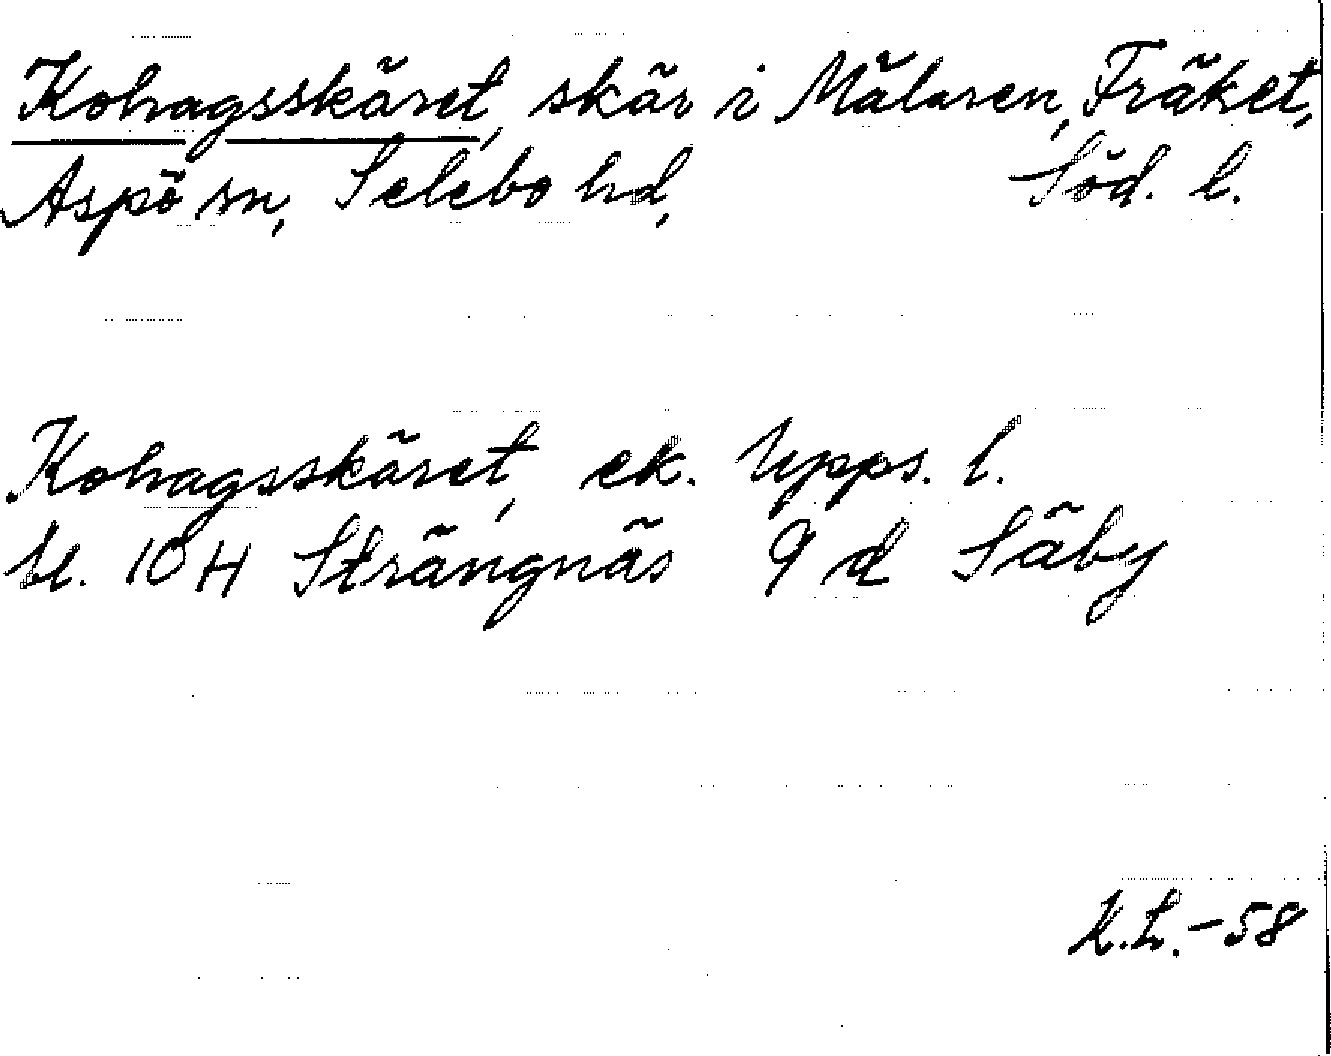 Kohagsskäret, skär i Mälaren, Fräket,
Aspö sn, Selebo hd, Söd. l.
Kohagsskäret, ek. Upps. l.
bl. 10 H Strängnäs 9 d Säby
K.H.-58